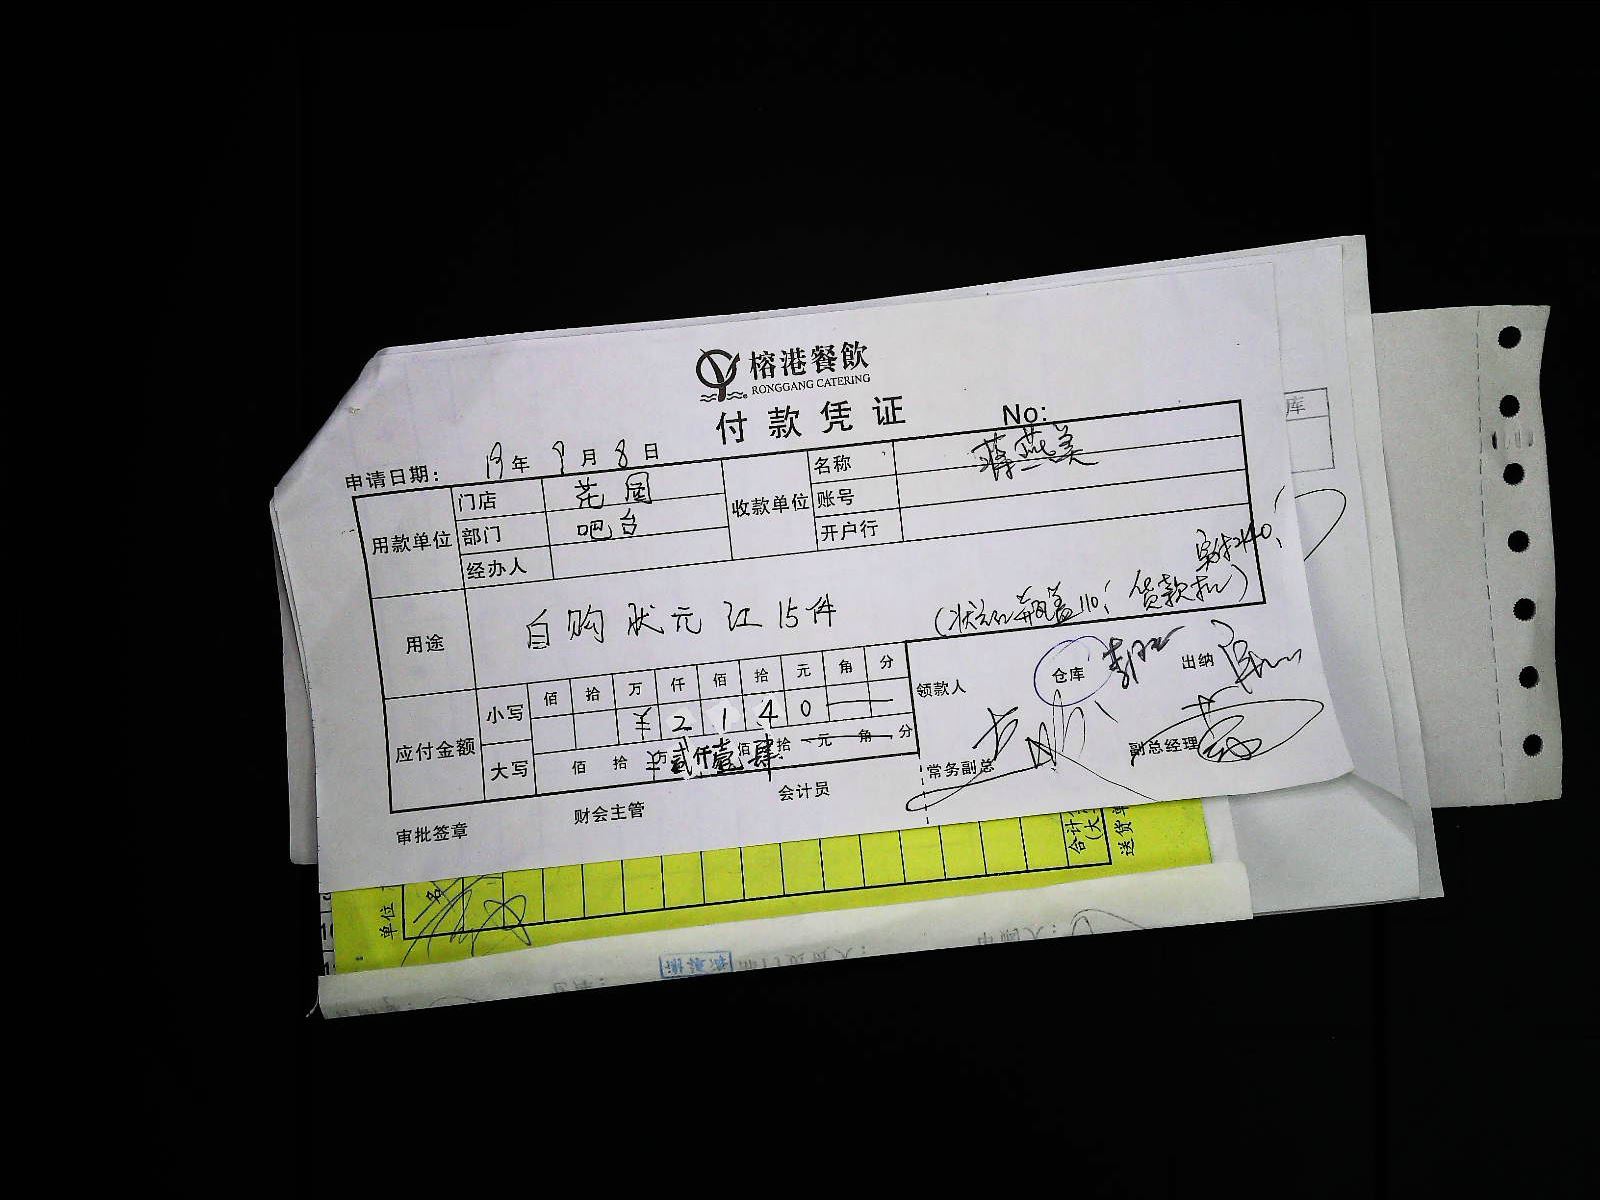 榕港餐飲
RONGGANG CATERING
付款凭证
No:
申请日期: 19年9月8日
用款单位 门店 花园
部门 吧台
经办人
收款单位 名称 蒋燕美
账号
开户行
用途 自购状元红15件
实付2140
(状元红瓶盖110, 货款扣)
应付金额 小写 佰 拾 万 仟 佰 拾 元 角 分
¥ 2 1 4 0
大写 佰 拾 万 贰仟 壹佰 肆拾 元 角 分
领款人
仓库
出纳
常务副总
副总经理
审批签章
财会主管
会计员
库
单位
名
合计
(大
送货单